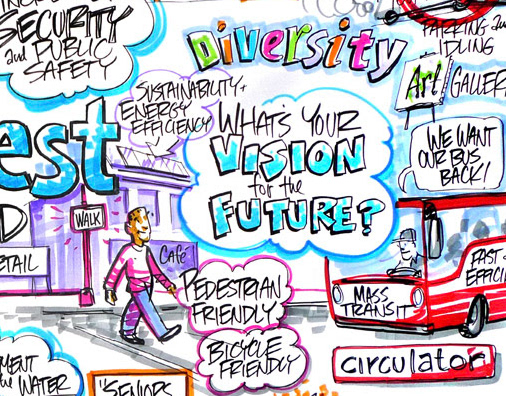 SECURITY
and PUBLIC
SAFETY
DIVERSITY
PARKING and
IDLING
Art GALLER
SUSTAINABILITY +
ENERGY
EFFICIENCY
WHAT'S YOUR
VISION
for the
FUTURE?
WE WANT
OUR BUS
BACK!
est
D
WALK
ETAIL
Café
PEDESTRIAN
FRIENDLY
BICYCLE
FRIENDLY
MASS
TRANSIT
FAST
EFFICI
circulator
MENT
the WATER
"SENIORS